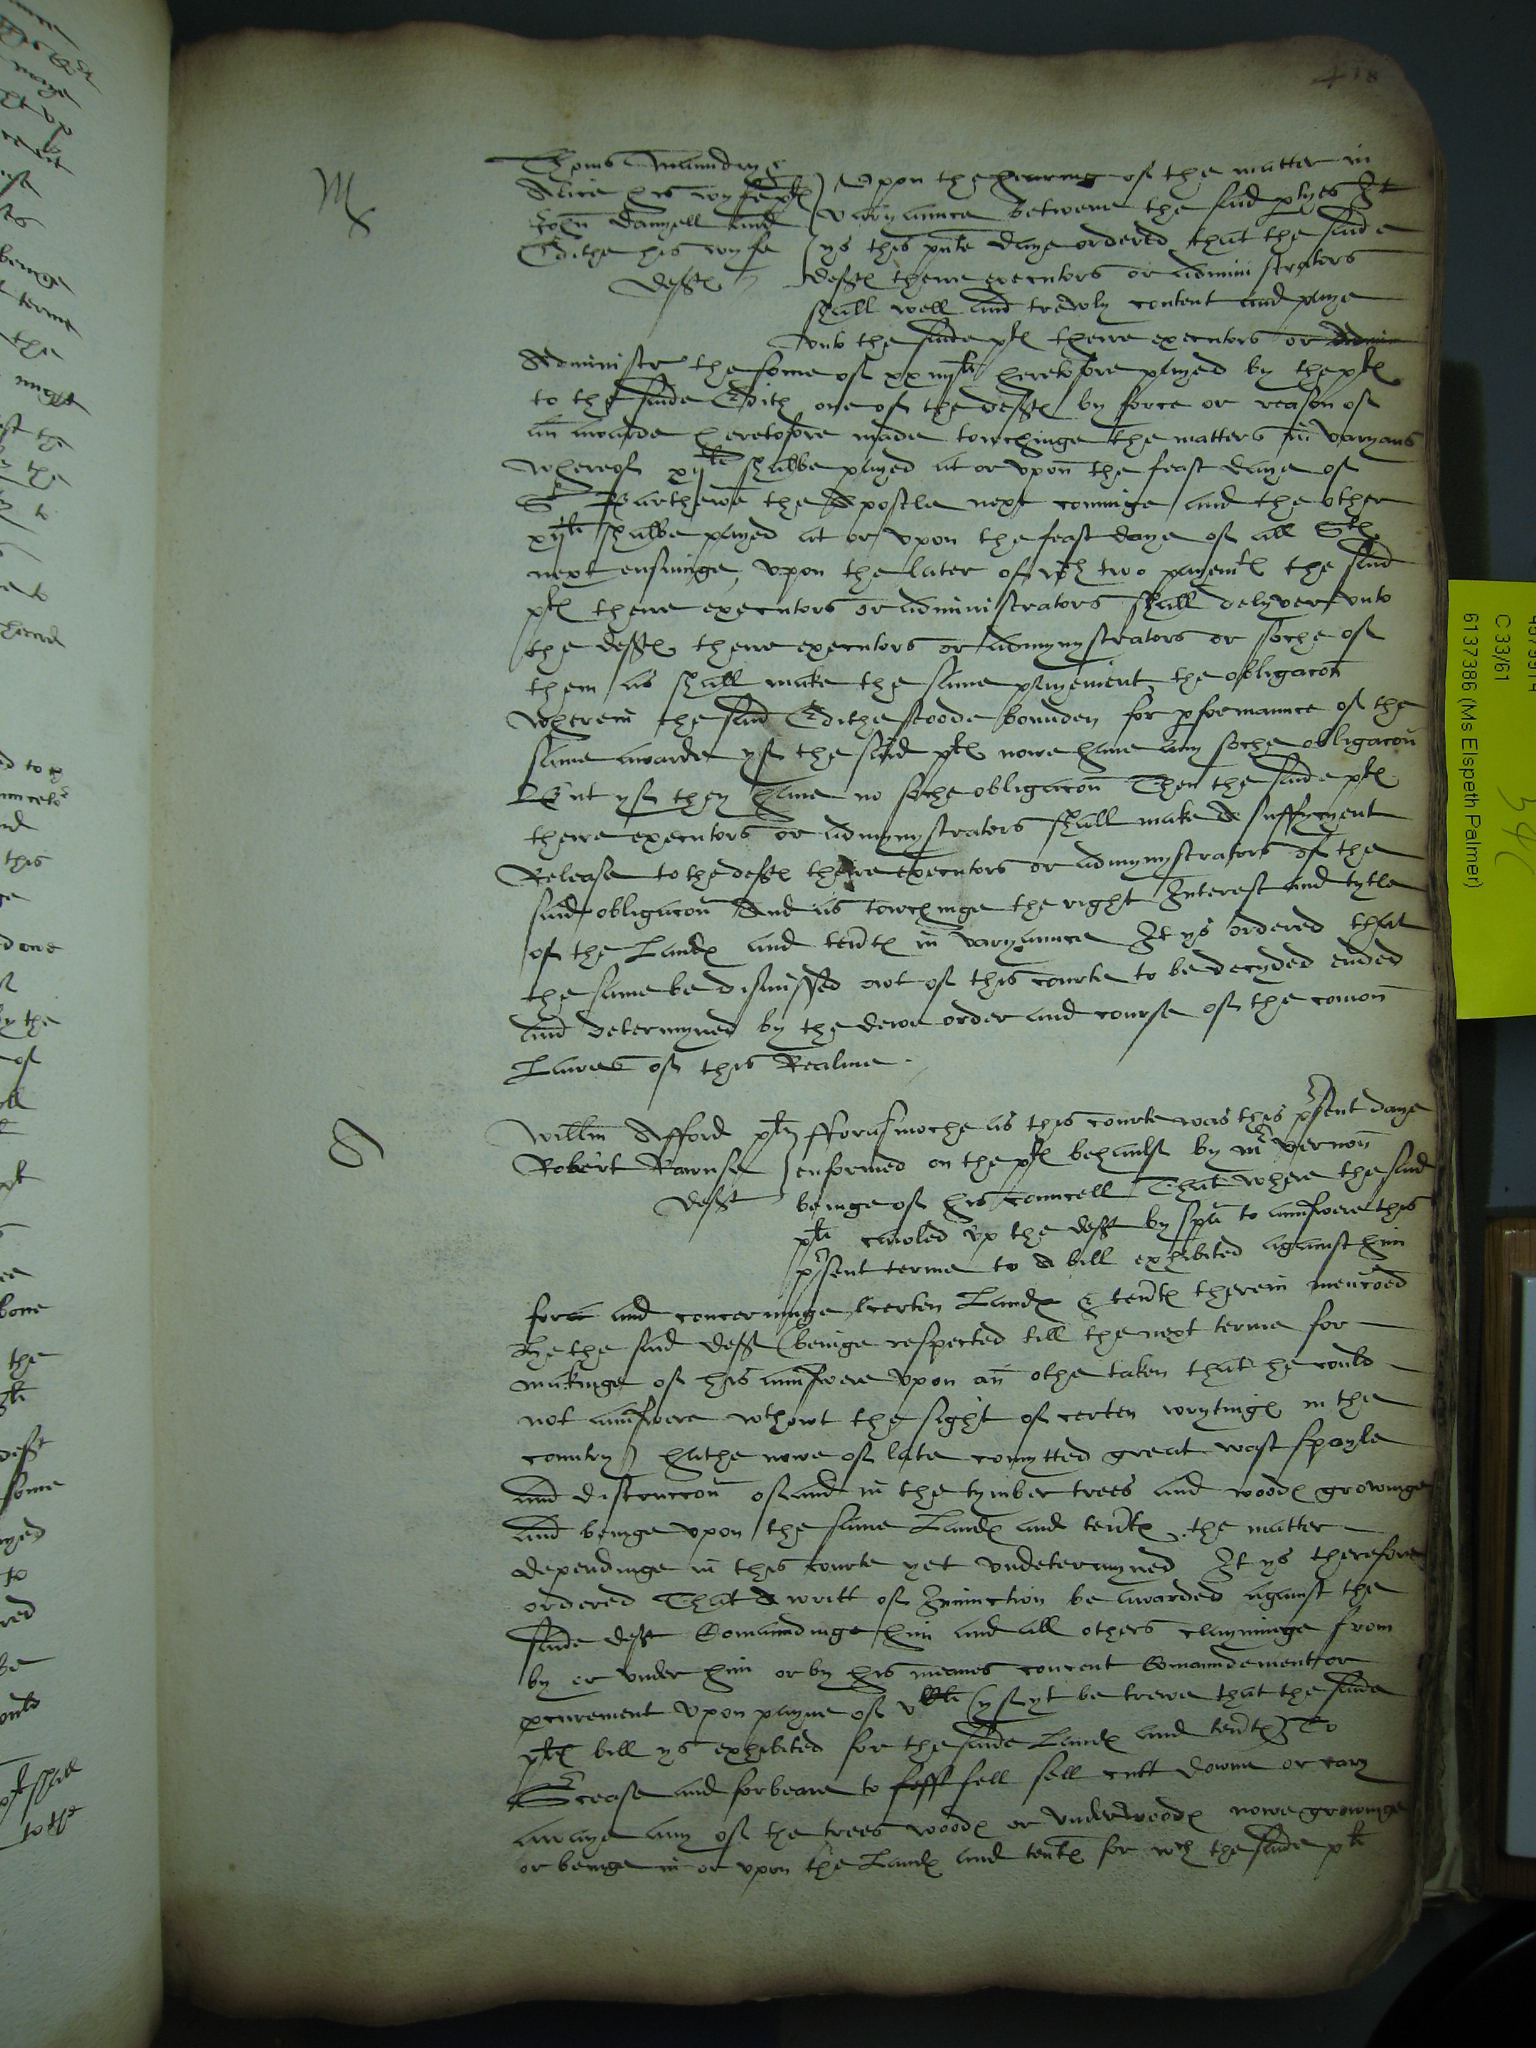 418
M
Thoms Maundry &
Alice his wyfe pltes
John Danyell and
Edithe his wyfe
defftes
Upon the hearing of the matter in
varyaunce betwene the said ptyes It
ys this pnte daye ordered that the saide
defftes theire executors or administrators
shall well and trewly content and paye
unto the saide pltes theire executors or admin
Administr the some of xxiiijli heretofore payed by the pltes
to the saide Edith one of the defftes by force or reason of
an awarde heretofore made towchinge the matters in varyans
Whereof xijli shalbe payed at or upon the feast daye of
St Barthewe the Apostle next cominge and the other
xijli shalbe payed at or upon the feast daye of all Stes
next ensuinge, upon the later of wch two payemtes the said
pltes theire executors or administrators shall delyver unto
the defftes theire executors or admynystrators or soche of
them as shall make the same payement the obligacon
wherein the said Edithe stoode bounden for pformaunce of the
same awarde yf the said pltes nowe have any soche obligacon
But yf they have no soche obligacon Then the saide pltes
theire executors or admynystrators shall make a suffycyent
Release to the defftes theire executors or admynystrators of the
said obligacon And as towchinge the right Interest and tytle
of the Landes and tentes in varyaunce It ys ordered that
the same be dismissed owt of this courte to be decyded ended
and determyned by the dewe order and course of the comon
Lawes of this Realme .
S
Willm Afford plt
Robert Barnse
defft
fforasmoche as this courte was this psent daye
enformed on the pltes behaulf by mr Vernon
beinge of his councell That where the said
plt called up the defft by spa to aunswere this
psent terme to a bill exhibited against him
for and concerninge certen Landes & tentes therein mencoed
He the said defft (beinge respected till the next terme for
makinge of his aunswere upon an othe taken that he could
not aunswere wthowt the sight of certen wrytinges in the
country) hathe nowe of late comytted great wast spoyle
and distruccon of and in the tymber trees and woodes growinge
and beinge upon the same Landes and tentes, the matter
dependinge in this courte yet undetermyned It ys therefore
ordered That a writt of Iniunction be awarded against the
saide defft Comaundinge him and all others clayminge from
by or under him or by his meanes concent Comaundement or
pcurement upon payne of vCli (yf yt be trewe that the saide
pltes bill ys exhibited for the saide Landes and tentes) To
Scease and forbeare to feff fell sell cutt downe or cary
awaye any of the trees woodes or underwoodes nowe growinge
or beinge in or upon the Landes and tentes for wch the saide plt
C 33/61
6137386 (Ms Elspeth Palmer)